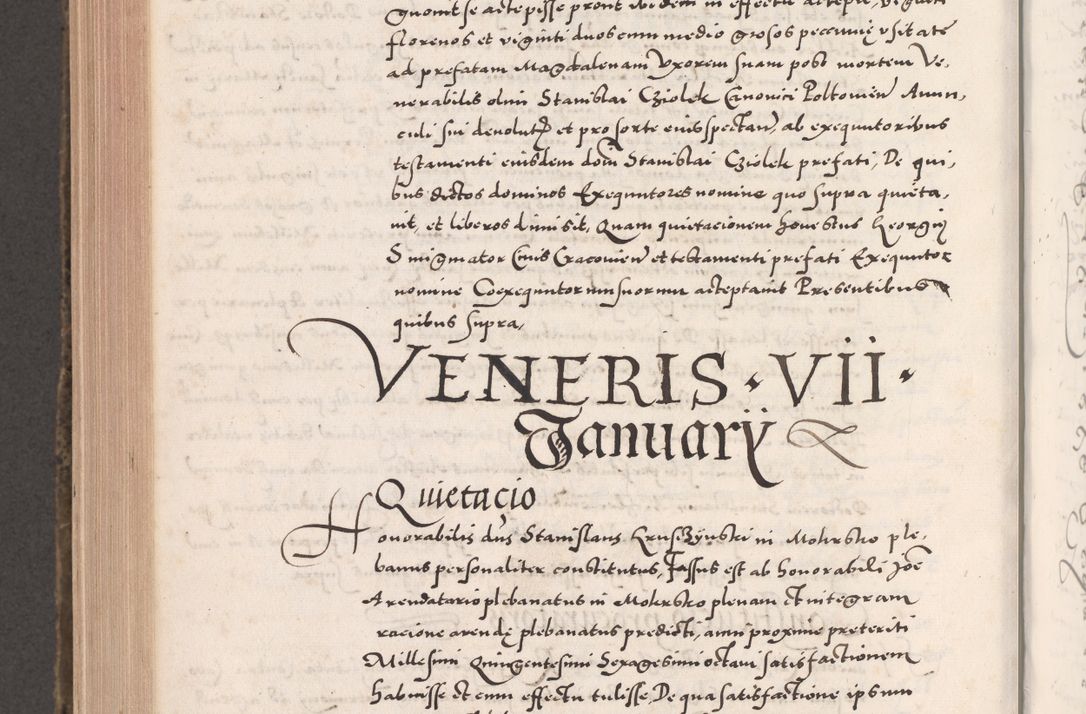 quomit se accepisse pront ibidem in effectu accepit, viginti
florenos et viginti duos cum medio grosos peccunię vsitate
ad prefatam Magdalenam Vxorem suam post mortem Ve,
nerabilis olim Stanislai Cziolek Canonici Poltovien Avun,
culi sui devolut et pro sorte eius spectan, ab exequutoribus
testamenti eiusdem dom Stanislai Cziolek prefati, De qui,
bus dictos dominos Exequutores nomine quo supra quieta,
uit, et liberos dimisit, Quam quietacionem honestus Georgiy
Smigmator Civis Cracovien et testamenti prefati Exequutor
nomine Coexequutorum suorum acceptavit Presentibus
quibus supra,
VENERIS · VII ·
Januarÿ
Quietacio
Honorabilis dns Stanislaus Krusczynski in Mokrsko ple,
banus personaliter constitutus, Fassus est ab honorabili Joe
Arendatario plebanatus in Mokrsko plenam et integram
racione arendę plebanatus predicti, anni proxime preteriti
Millesimi Quingentesimi Sexagesimi octavi satisfactionem
habuisse et cum effectu tulisse, De qua satisfactione ipsum